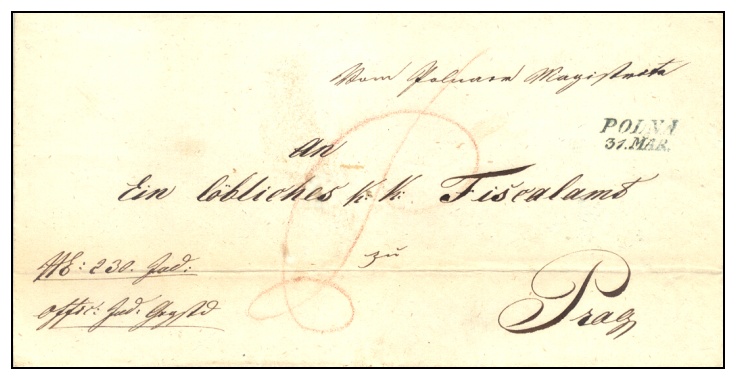 Vom Polnaer Magistrate
POLNA
31. MAR.
An
Ein löbliches k: k: Fiscalamt
zu
Prag
NE: 230. Jud:
offic: Jud: Ggstd